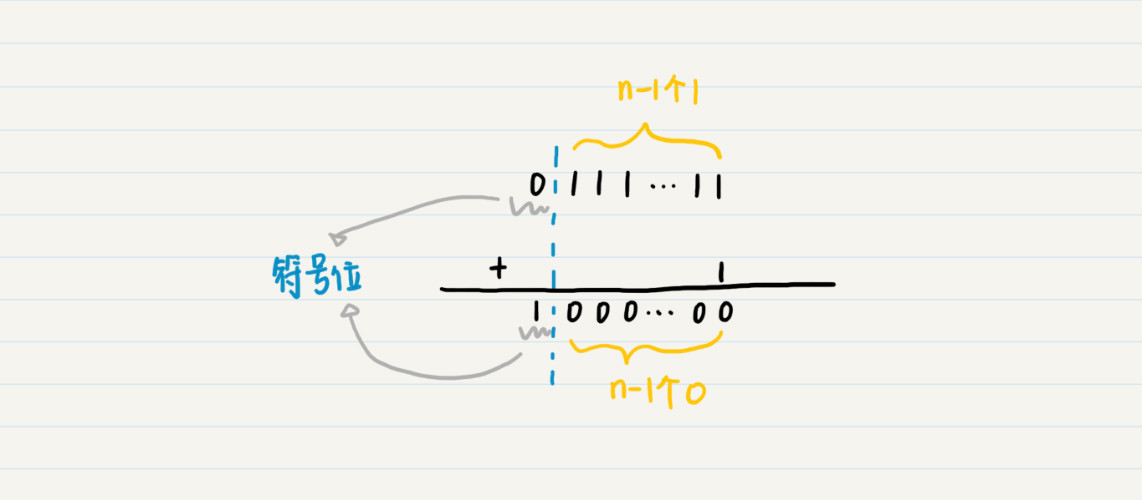 n-1个1
0 1 1 1 ... 1 1
符号位
+ 1
1 0 0 0 ... 0 0
n-1个0